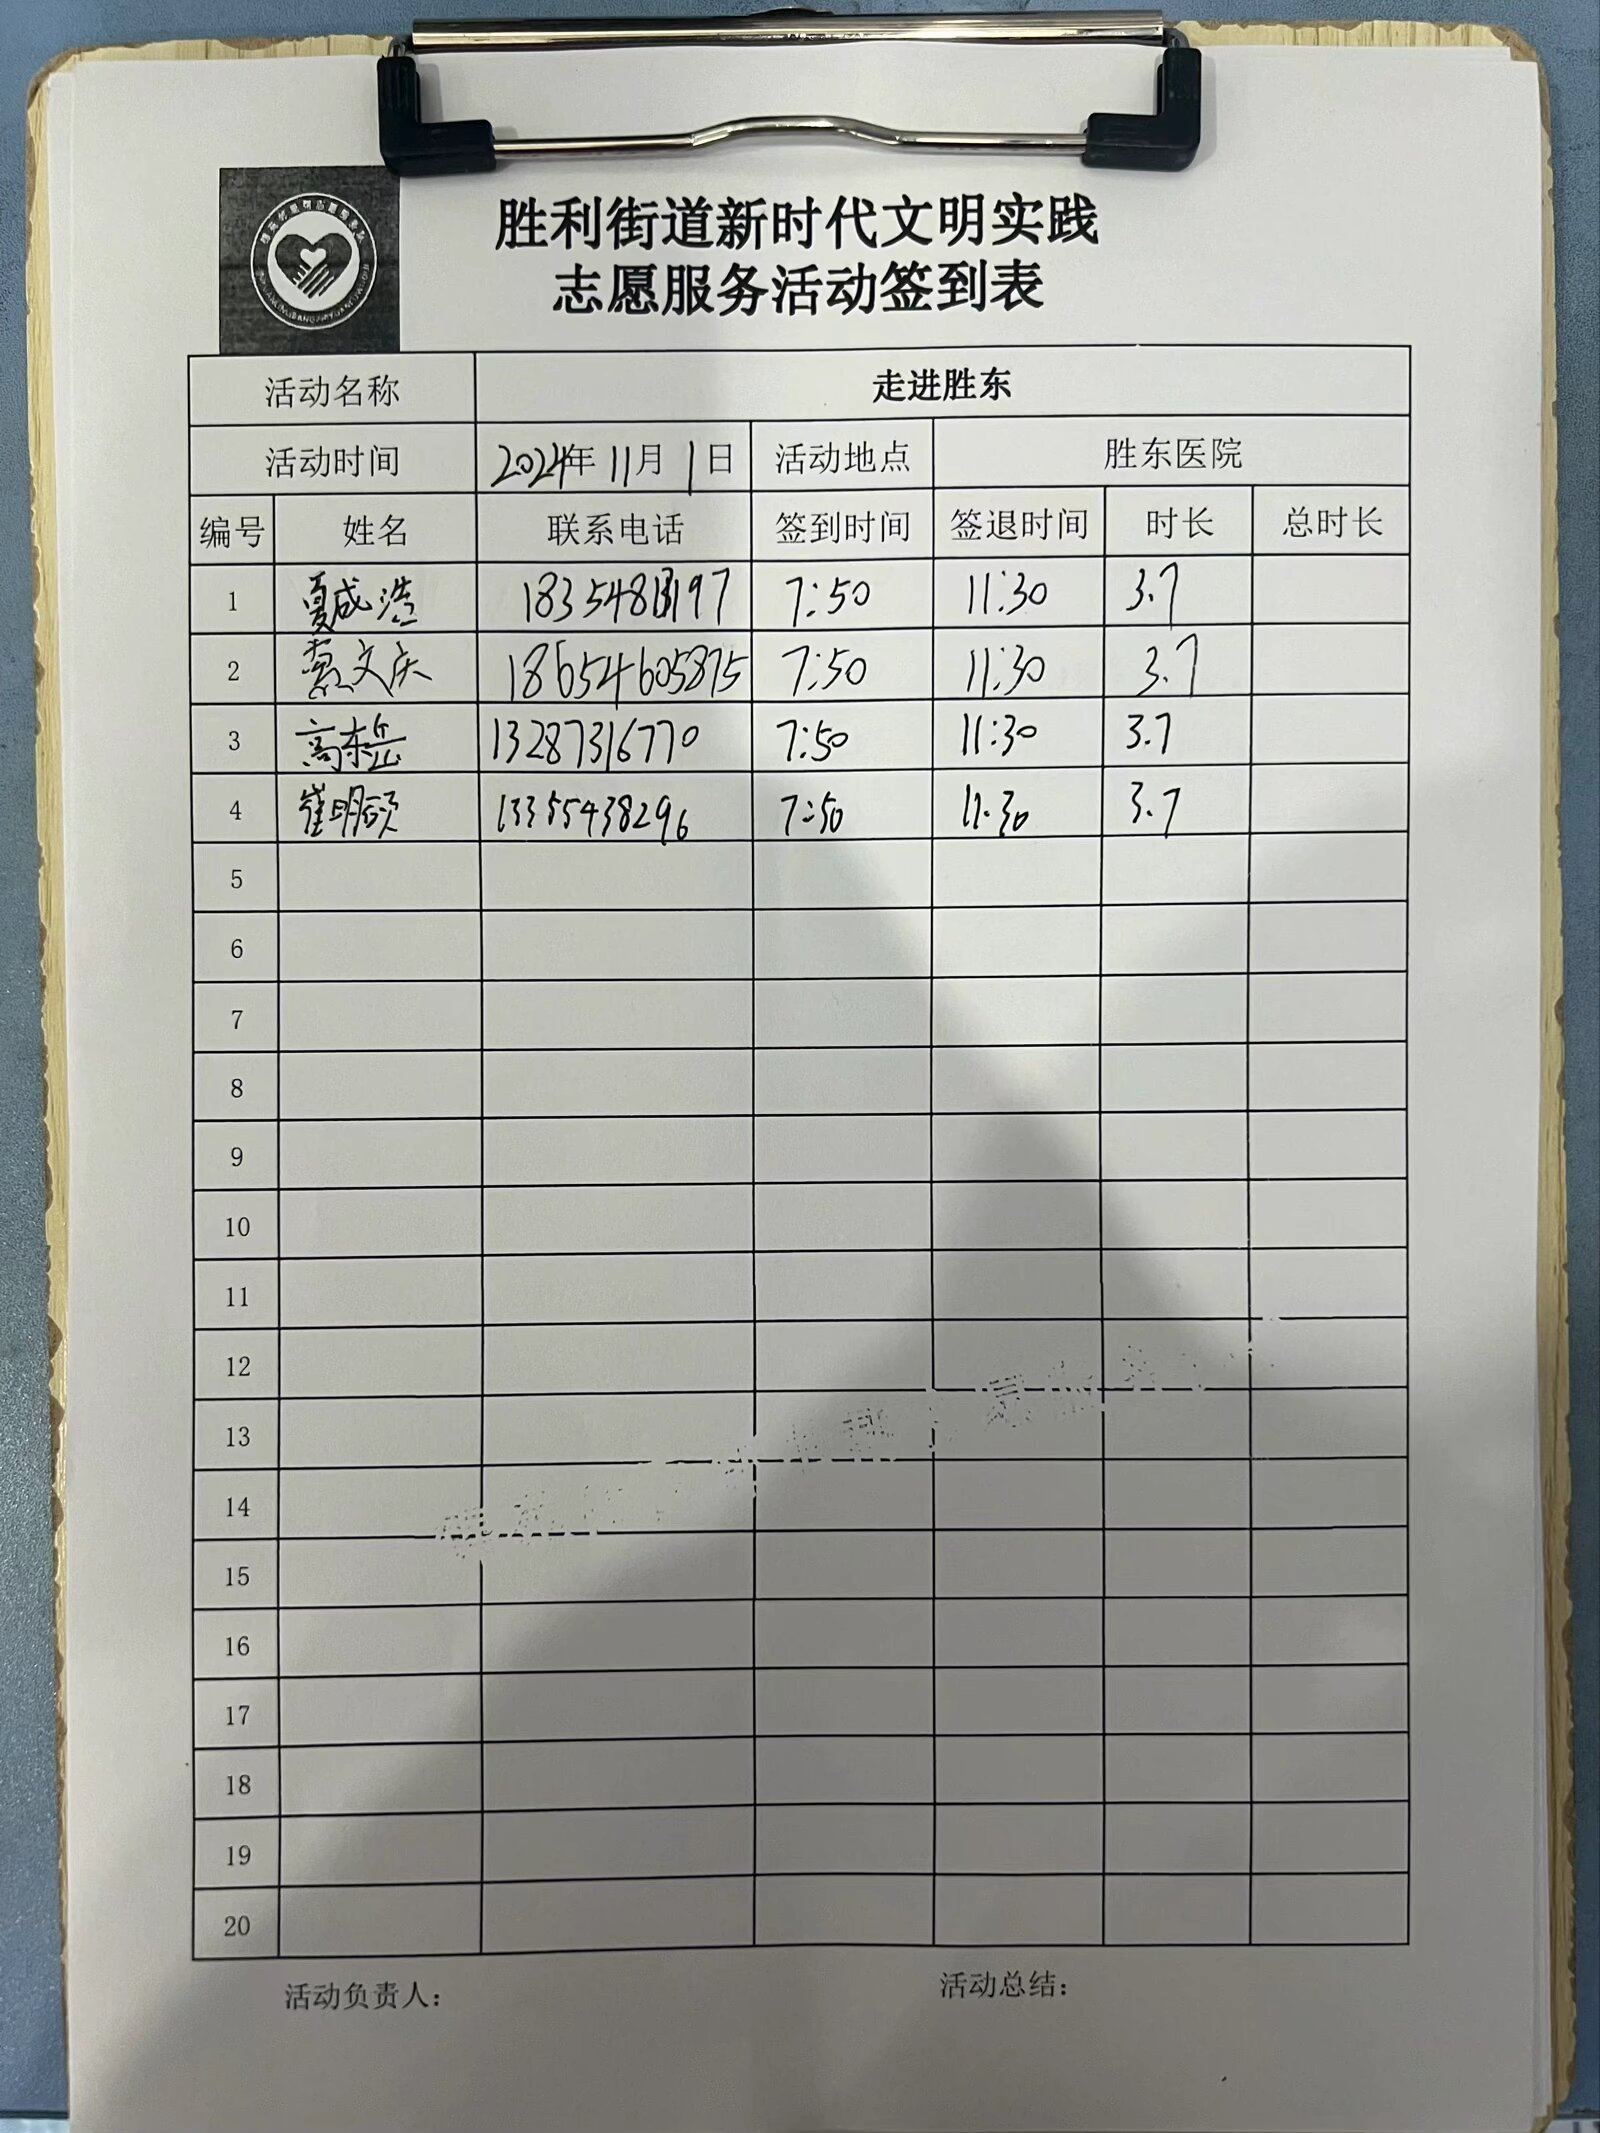 胜利街道新时代文明实践
志愿服务活动签到表
活动名称 走进胜东
活动时间 2024年 11月 1日 活动地点 胜东医院
编号 姓名 联系电话 签到时间 签退时间 时长 总时长
1 夏成浩 7:50 11:30 3.7
2 文庆 18654605875 7:50 11:30 3.7
3 高东岳 13287316770 7:50 11:30 3.7
4 崔明硕 13355438296 7:50 11:30 3.7
5
6
7
8
9
10
11
12
13
14
15
16
17
18
19
20
活动负责人： 活动总结：